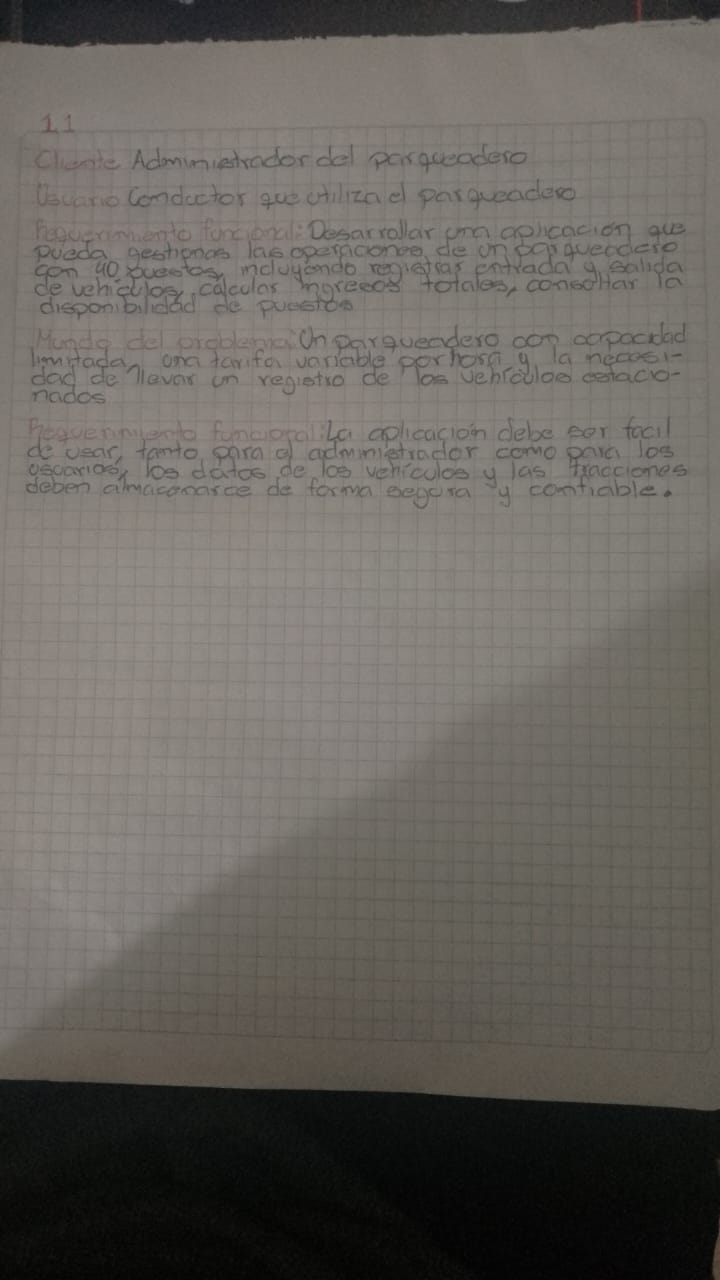 1.1
Cliente Administrador del parqueadero
Usuario Conductor que utiliza el parqueadero
Requerimiento funcional: Desarrollar una aplicación que
pueda gestionar las operaciones de un parqueadero
con 40 puestos, incluyendo registrar entrada y salida
de vehículos, calcular ingresos totales, consultar la
disponibilidad de puestos
Mundo del problema: Un parqueadero con capacidad
limitada, una tarifa variable por hora y la necesi-
dad de llevar un registro de los vehículos estacio-
nados
Requerimiento funcional: La aplicación debe ser facil
de usar, tanto para el administrador como para los
usuarios, los datos de los vehículos y las tracciones
deben almacenarce de forma segura y confiable.